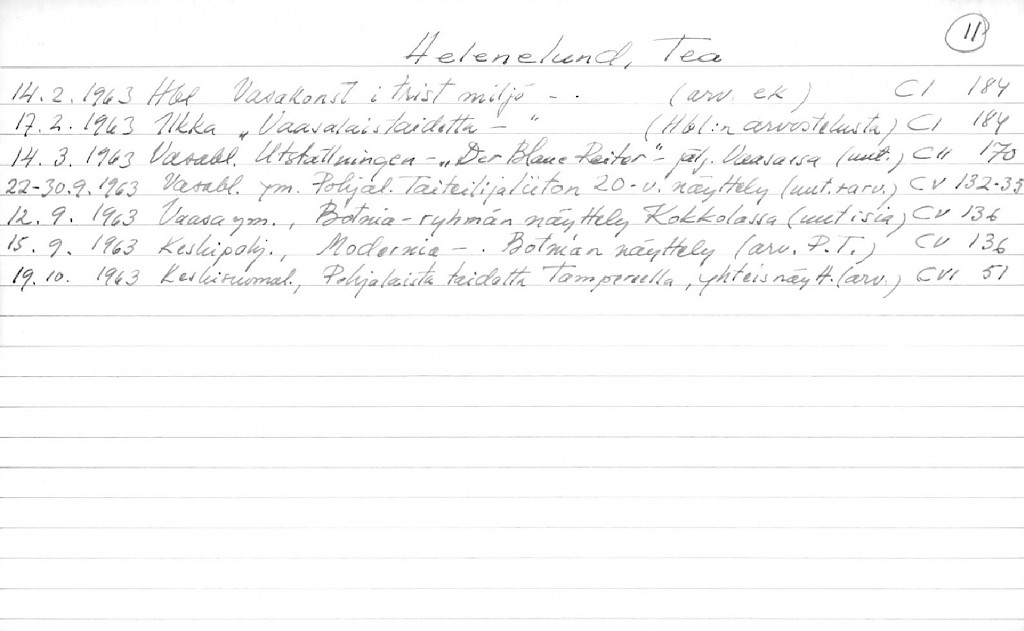 11
Helenelund, Tea
14.2.1963 Hbl Vasakonst i trist miljö - . (arv. ek) CI 184
17.2.1963 Ilkka „Vaasalaistaidetta - " (Hbl:n arvostelusta) CI 184
14.3.1963 Vasabl. Utställningen - „Der Blaue Reiter" - jälj. Vaasassa (uut.) CII 170
22-30.9.1963 Vasabl. ym. Pohjal. Taiteilijaliiton 20-v. näyttely (uut. arv.) CV 132-35
12.9.1963 Vaasa ym., Botnia-ryhmän näyttely Kokkolassa (uutisia) CV 136
15.9.1963 Keskipohj., Modernia - . Botnian näyttely (arv. P.T.) CV 136
19.10.1963 Keskisuomal., Pohjalaista taidetta Tampereella, yhteisnäytt. (arv.) CVI 51